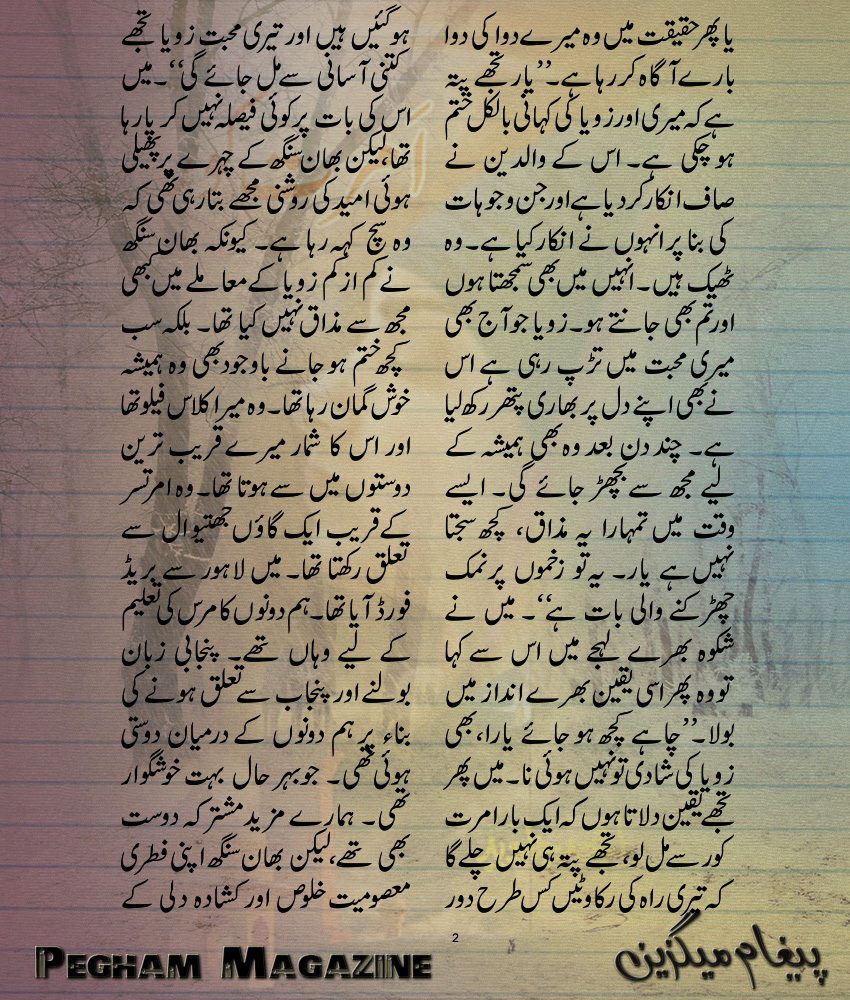 یا پھر حقیقت میں وہ میرے دوا کی دوا
بارے آگاہ کر رہا ہے۔’’یار تجھے پتہ
ہے کہ میری اور زویا کی کہانی بالکل ختم
ہو چکی ہے۔ اس کے والدین نے
صاف انکار کر دیا ہے اور جن وجوہات
کی بنا پر انہوں نے انکار کیا ہے۔ وہ
ٹھیک ہیں۔ انہیں میں بھی سمجھتا ہوں
اور تم بھی جانتے ہو۔ زویا جو آج بھی
میری محبت میں تڑپ رہی ہے اس
نے بھی اپنے دل پر بھاری پتھر رکھ لیا
ہے۔ چند دن بعد وہ بھی ہمیشہ کے
لیے مجھ سے بچھڑ جائے گی۔ ایسے
وقت میں تمہارا یہ مذاق، کچھ سجتا
نہیں ہے یار۔ یہ تو زخموں پر نمک
چھڑکنے والی بات ہے‘‘۔ میں نے
شکوہ بھرے لہجے میں اس سے کہا
تو وہ پھر اسی یقین بھرے انداز میں
بولا۔’’چاہے کچھ ہو جائے یارا، بھی
زویا کی شادی تو نہیں ہوئی نا۔ میں پھر
تجھے یقین دلاتا ہوں کہ ایک بار امرت
کور سے مل لو، تجھے پتہ ہی نہیں چلے گا
کہ تیری راہ کی رکاوٹیں کس طرح دور
ہو گئیں ہیں اور تیری محبت زویا تجھے
کتنی آسانی سے مل جائے گی‘‘۔ میں
اس کی بات پر کوئی فیصلہ نہیں کر پا رہا
تھا، لیکن بھان سنگھ کے چہرے پر پھیلی
ہوئی امید کی روشنی مجھے بتا رہی تھی کہ
وہ سچ کہہ رہا ہے۔ کیونکہ بھان سنگھ
نے کم از کم زویا کے معاملے میں کبھی
مجھ سے مذاق نہیں کیا تھا۔ بلکہ سب
کچھ ختم ہو جانے باوجود بھی وہ ہمیشہ
خوش گمان رہا تھا۔ وہ میرا کلاس فیلو تھا
اور اس کا شمار میرے قریب ترین
دوستوں میں سے ہوتا تھا۔ وہ امرتسر
کے قریب ایک گاؤں جھتیوال سے
تعلق رکھتا تھا۔ میں لاہور سے بریڈ
فورڈ آیا تھا۔ ہم دونوں کامرس کی تعلیم
کے لیے وہاں تھے۔ پنجابی زبان
بولنے اور پنجاب سے تعلق ہونے کی
بناء پر ہم دونوں کے درمیان دوستی
ہوئی تھی۔ جو بہر حال بہت خوشگوار
تھی۔ ہمارے مزید مشترکہ دوست
بھی تھے، لیکن بھان سنگھ اپنی فطری
معصومیت خلوص اور کشادہ دلی کے
2
PEGHAM MAGAZINE
پیغام میگزین